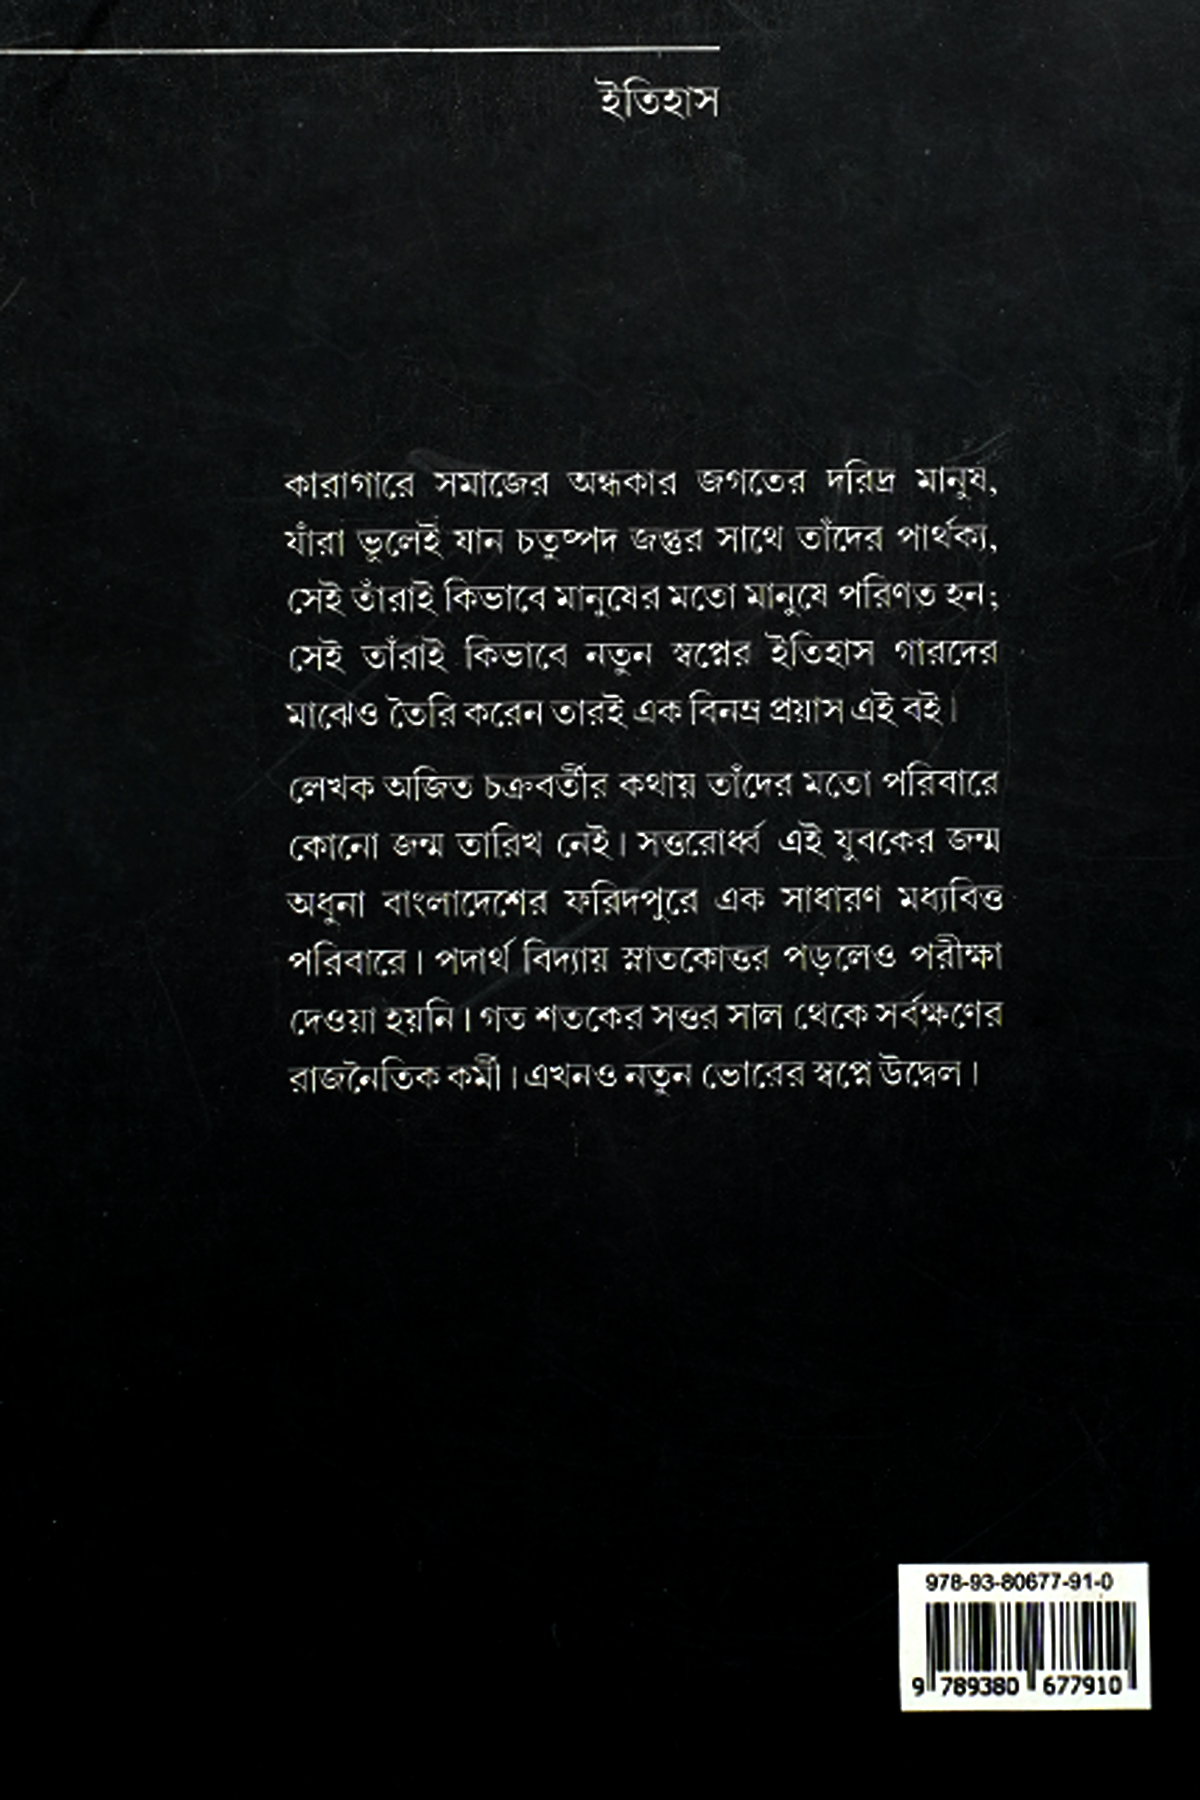 ইতিহাস
কারাগারে সমাজের অন্ধকার জগতের দরিদ্র মানুষ,
যাঁরা ভুলেই যান চতুষ্পদ জন্তুর সাথে তাঁদের পার্থক্য,
সেই তাঁরাই কিভাবে মানুষের মতো মানুষে পরিণত হন;
সেই তাঁরাই কিভাবে নতুন স্বপ্নের ইতিহাস গারদের
মাঝেও তৈরি করেন তারই এক বিনম্র প্রয়াস এই বই।
লেখক অজিত চক্রবর্তীর কথায় তাঁদের মতো পরিবারে
কোনো জন্ম তারিখ নেই। সত্তরোর্ধ্ব এই যুবকের জন্ম
অধুনা বাংলাদেশের ফরিদপুরে এক সাধারণ মধ্যবিত্ত
পরিবারে। পদার্থ বিদ্যায় স্নাতকোত্তর পড়লেও পরীক্ষা
দেওয়া হয়নি। গত শতকের সত্তর সাল থেকে সর্বক্ষণের
রাজনৈতিক কর্মী। এখনও নতুন ভোরের স্বপ্নে উদ্বেল।
978-93-80677-91-0
9 789380 677910